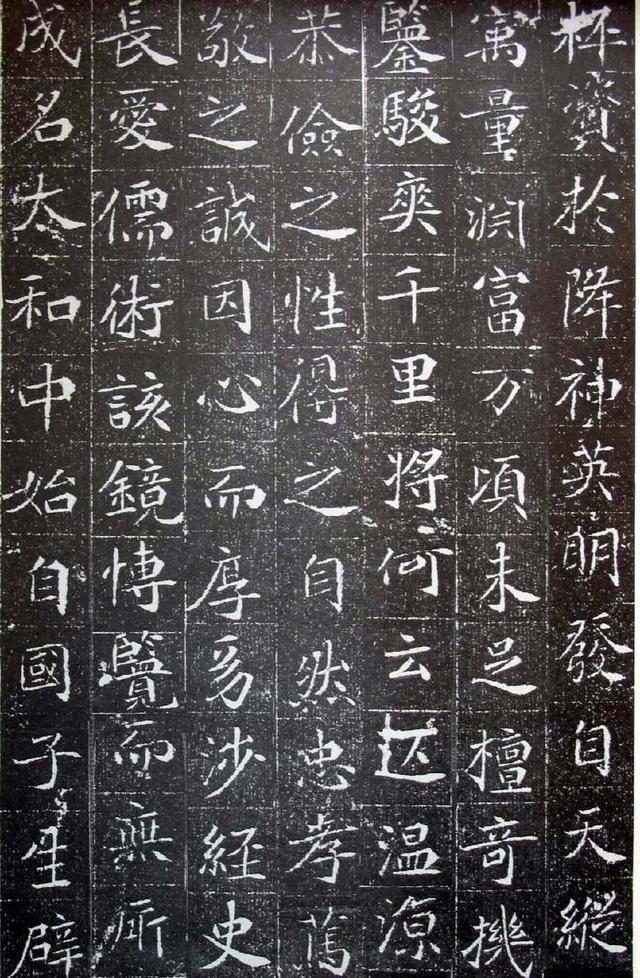 資於降神英明發自天縱
寓量淵富万頃未足檀奇機
鑒駿爽千里將何云温
恭儉之性得之自然忠孝篤
敬之誠因心而厚多涉經史
長愛儒術該鏡愽覽而無所
成名太和中始自國子生辟